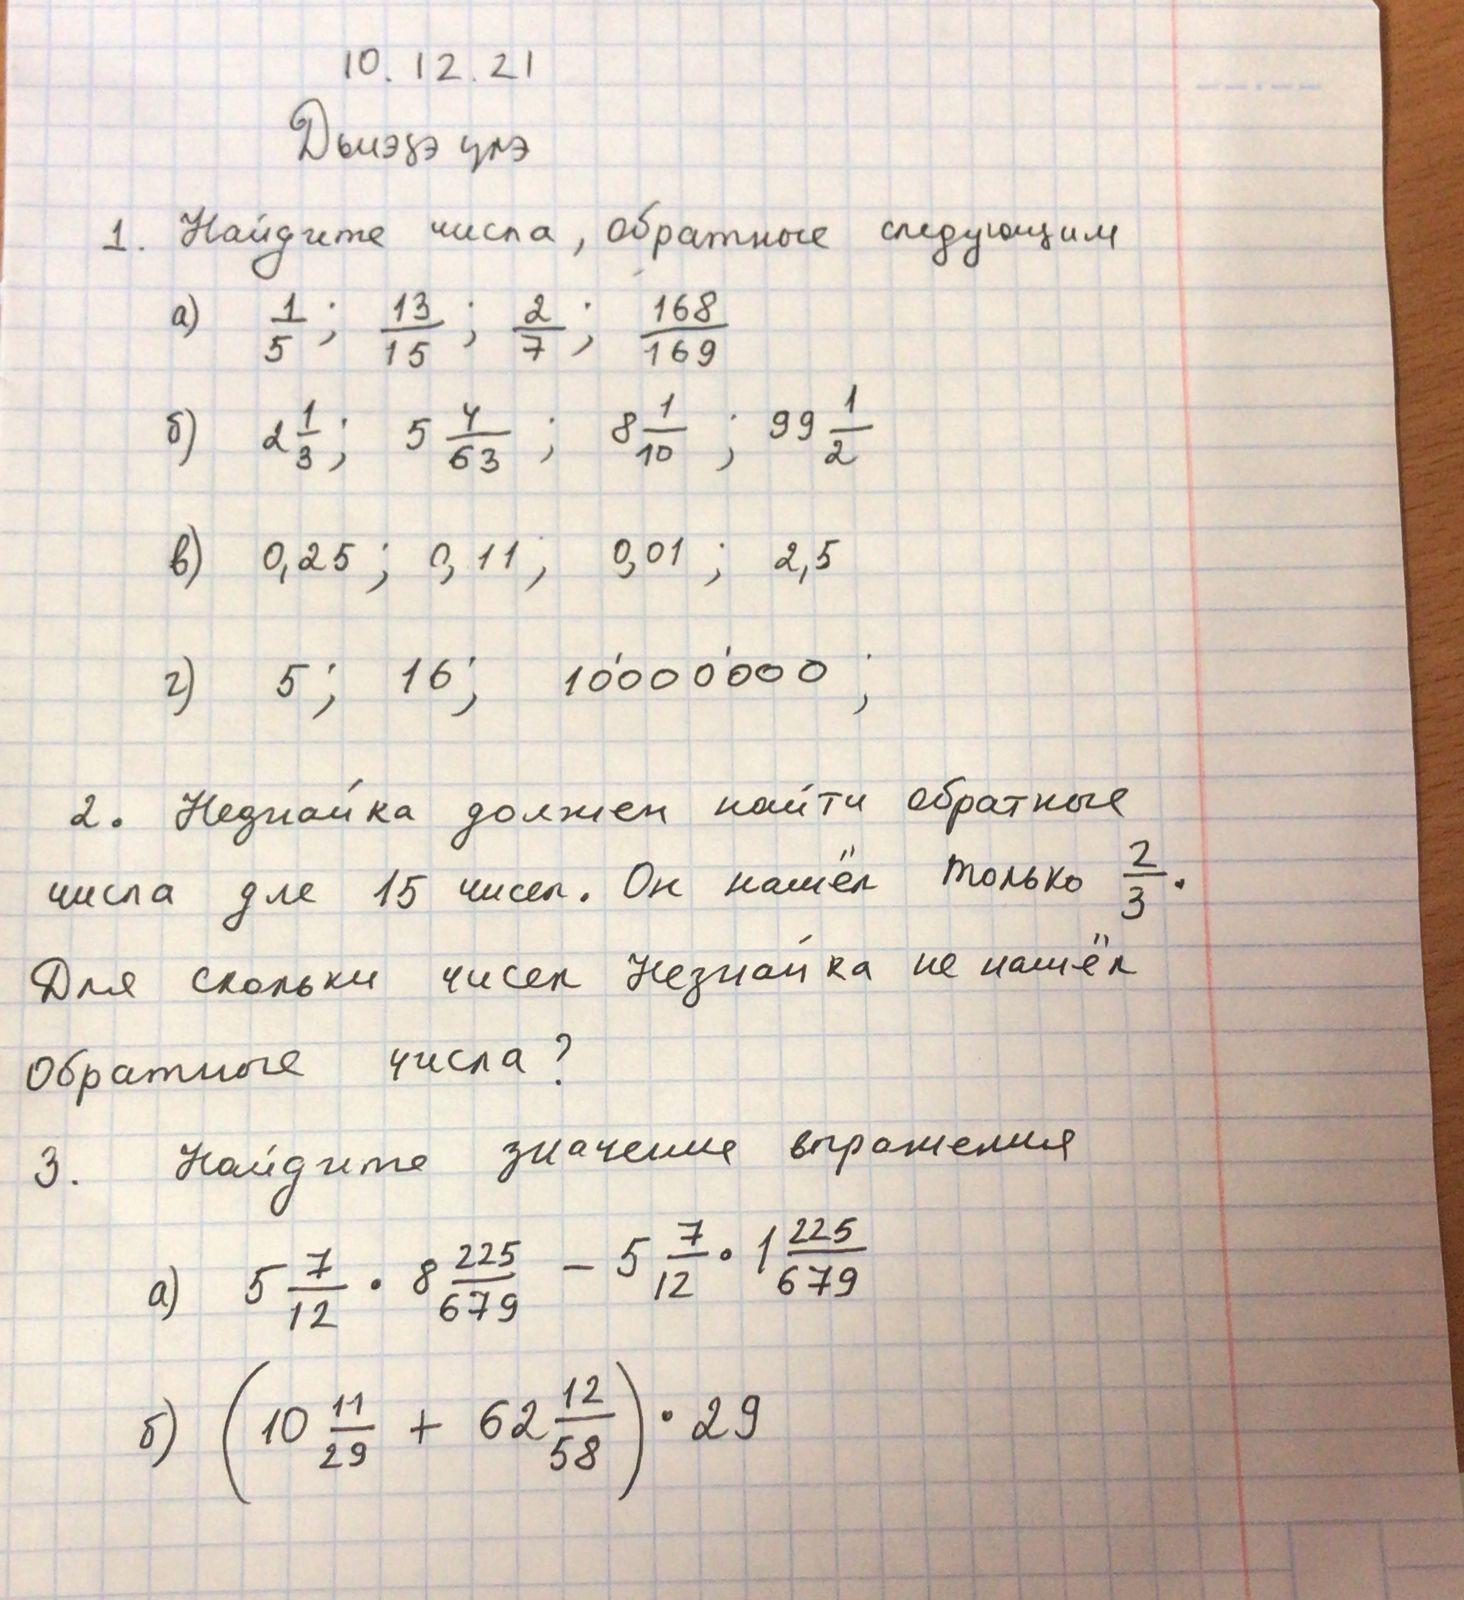 10.12.21
Дьиэҕэ үлэ
1. Найдите числа, обратные следующим
а) 1/5; 13/15; 2/7; 168/169
б) 2 1/3; 5 4/63; 8 1/10; 99 1/2
в) 0,25; 0,11; 0,01; 2,5
г) 5; 16; 10'000'000;
2. Незнайка должен найти обратные
числа для 15 чисел. Он нашёл только 2/3.
Для скольки чисел Незнайка не нашёл
обратные числа?
3. Найдите значение выражения
а) 5 7/12 · 8 225/679 - 5 7/12 · 1 225/679
б) (10 11/29 + 62 12/58) · 29